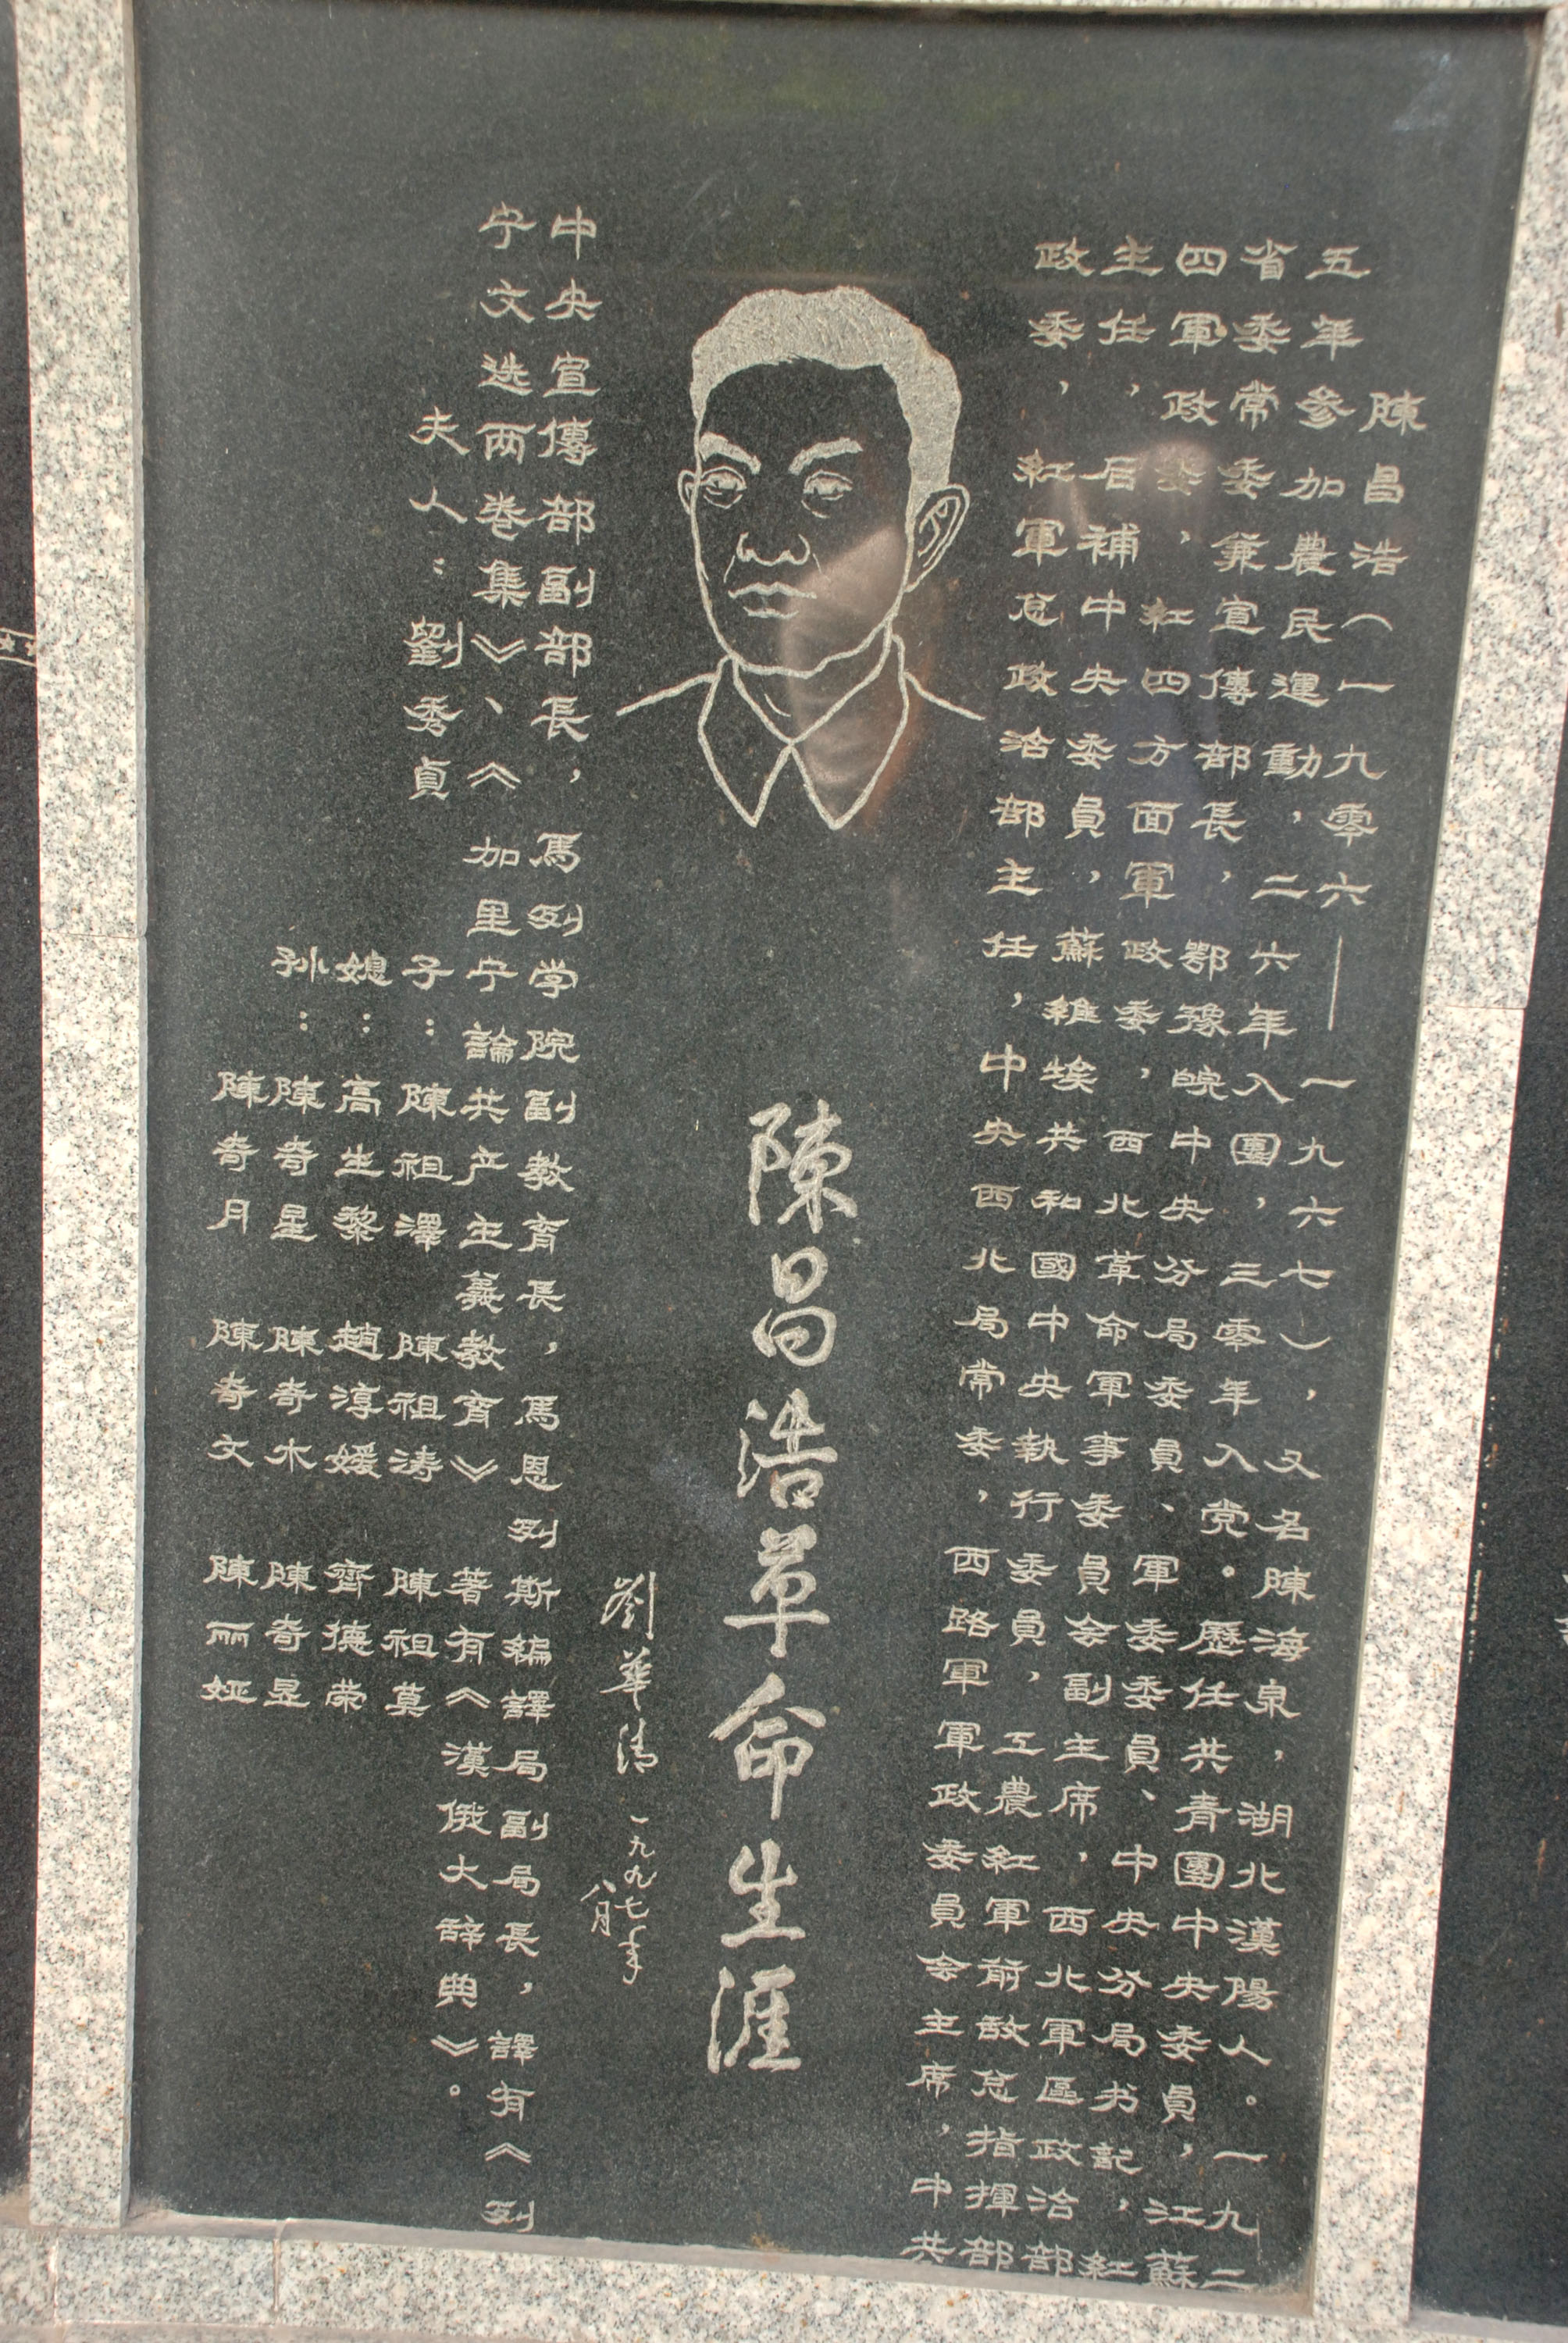 陳昌浩（一九零六——一九六七），又名陳海泉，湖北漢陽人。一九二
五年參加農民運動，二六年入團，三零年入党。歷任共青團中央委員，江蘇
省委常委兼宣傳部長，鄂豫皖中央分局委員、軍委委員、中央分局书記，紅
四軍政委，紅四方面軍政委，西北革命軍事委員会副主席，西北軍區政治部
主任，后補中央委員，蘇維埃共和國中央執行委員，工農紅軍前敌总指揮部
政委，紅軍总政治部主任，中央西北局常委，西路軍軍政委員会主席，中共
陳昌浩革命生涯
劉華清 一九九七年
八月
中央宣傳部副部長，馬列学院副教育長，馬恩列斯編譯局副局長，譯有《列
宁文选两卷集》、《加里宁論共产主義教育》著有《漢俄大辞典》。
夫人：劉秀貞
子：陳祖澤 陳祖涛 陳祖莫
媳：高生黎 趙淳媛 齊德荣
孙：陳奇星 陳奇木 陳奇昱
陳奇月 陳奇文 陳丽娅